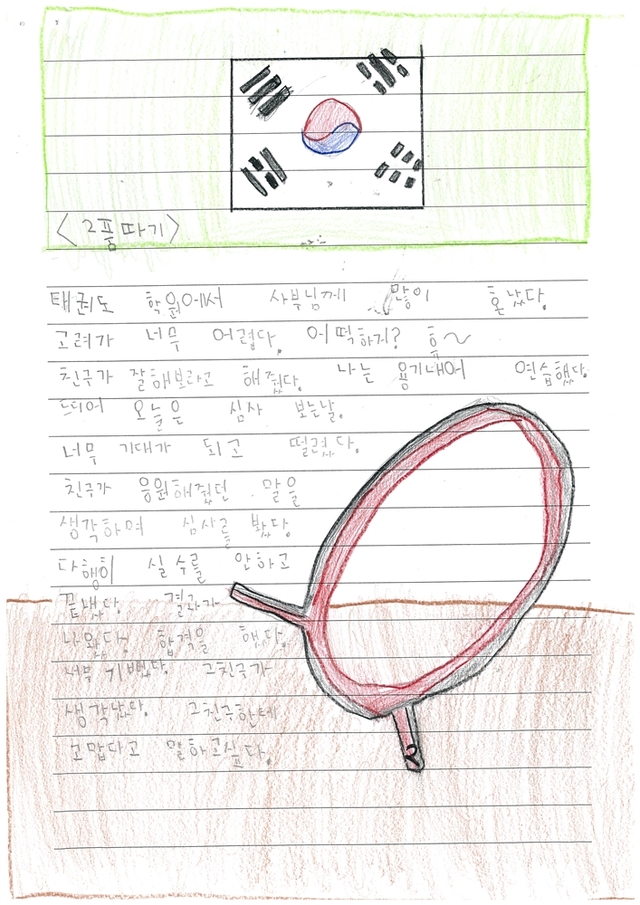 <2품 따기>
태권도 학원에서 사부님께 많이 혼났다.
고려가 너무 어렵다. 어떡하지? 흠~
친구가 잘해보라고 해줬다. 나는 용기내어 연습했다.
드디어 오늘은 심사 보는날.
너무 기대가 되고 떨렸다.
친구가 응원해줬던 말을
생각하며 심사를 봤다.
다행히 실수를 안하고
끝냈다. 결과가
나왔다. 합격을 했다.
너무 기뻤다. 그친구가
생각났다. 그친구한테
고맙다고 말하고싶다.
2